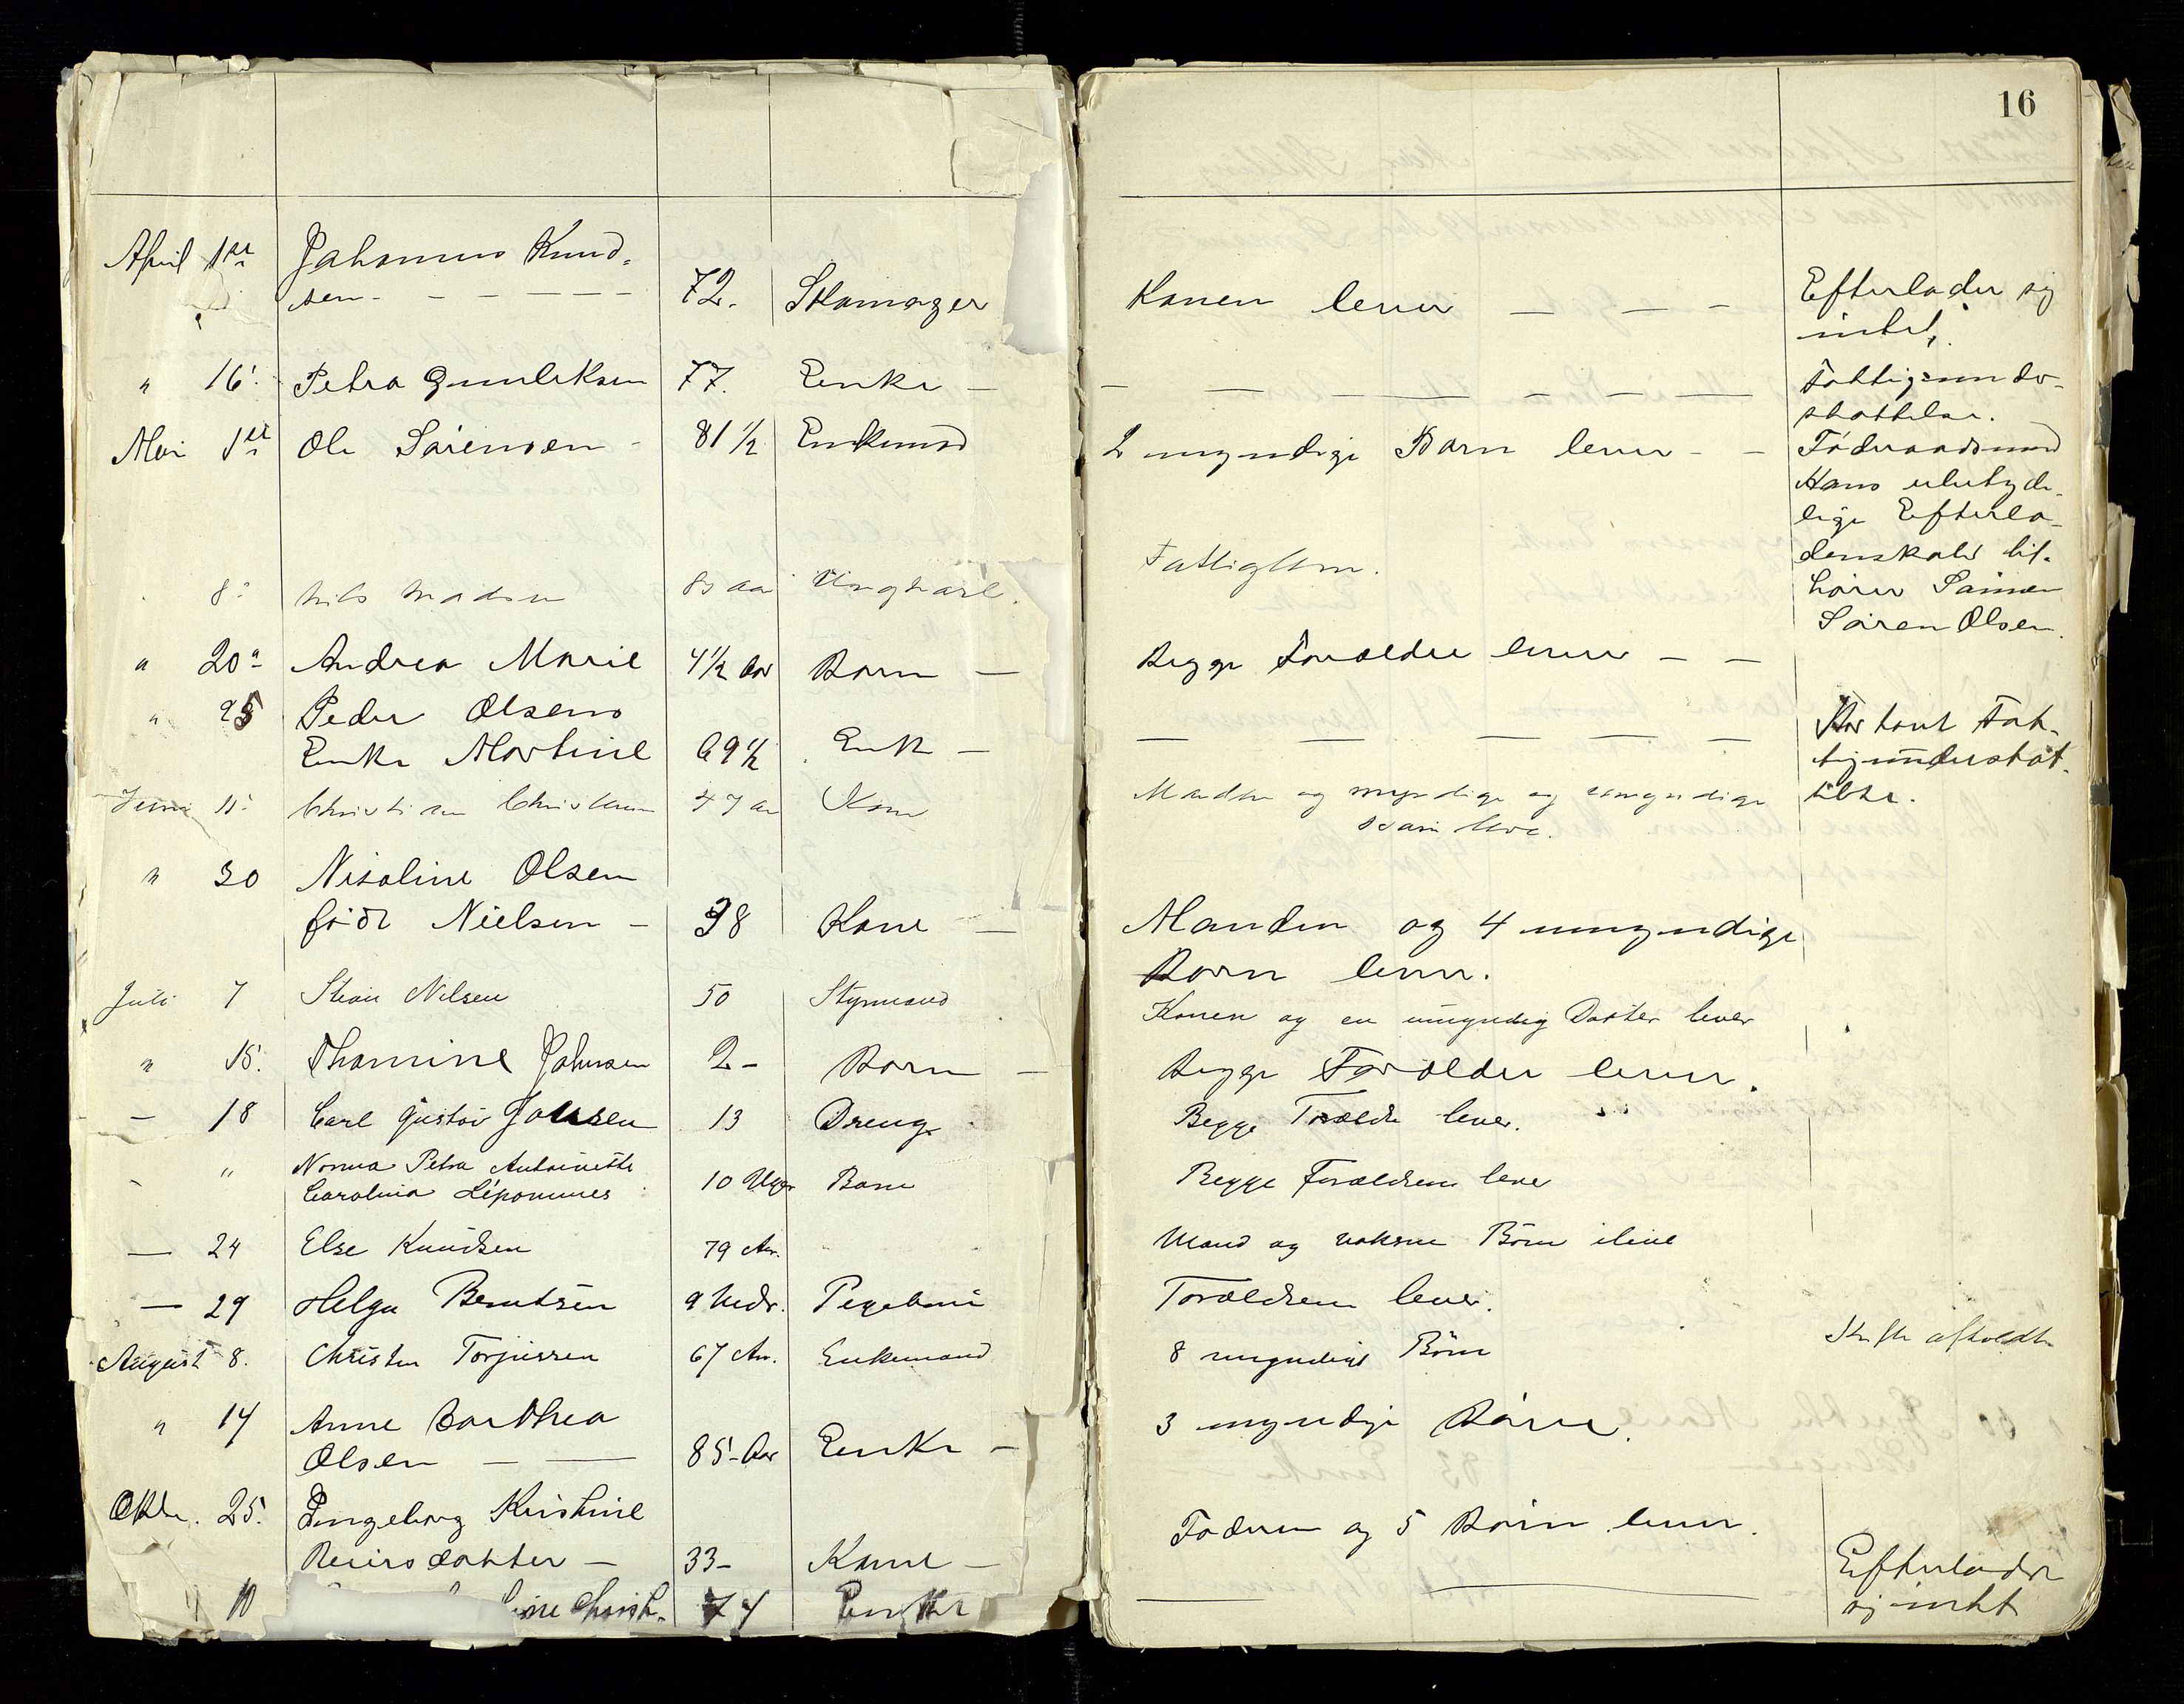 16
April 1ste Johannes Knud-
sen - 72. Skomager Konen lever - Efterlader sig
intet.
" 16. Petra Gundeksen 77. Enke - Fattigunder-
støttelse.
Mai 1ste Ole Sørensen - 81 1/2 Enkemand 2 myndige Børn lever - Føderaadsmand
Hans ubetyde-
lige Efterla-
denskaber til-
hører Sønnen
Søren Olsen.
8. Nils Madsen 83 aar Ungkarl. Fattiglem.
" 20. Andrea Marie 4 1/2 Aar Barn - Begge Forældre lever -
" 25 Peder Olsens
Enke Martine 69 1/2 Enke - Har havt Fat-
tigunderstøt-
telse.
Juni 11. Christiane Christensen 47 aar Kone Manden og myndige og umyndige
Børn leve.
" 30 Nisoline Olsen
født Nielsen - 38 Kone - Manden og 4 umyndige
Børn lever.
Juli 7 Nilsen 50 Styrmand Konen og en umyndig Datter lever
" 15. Thomine Johnsen 2 - Barn - Begge Forældre lever.
- 18 Carl Gustav Johnsen 13 Dreng. Begge Forældre lever.
- " Norma Petra Antoinette
Carolina Lépommes 10 Uger Barn Begge Forældrene lever
- 24 Else Knudsen 79 Aar. Mand og voksne Børn ilive
- 29 Helga Berntsen 9 Mdr. Pigebarn Forældrene lever.
August 8. Christen Torjussen 67 Aar. Enkemand 8 myndige Børn Skifte afholdt
" 14 Anne Barthea
Olsen - 85 - Aar Enke - 3 myndige Børn.
Oktbr. 25. Ingeborg Kristine
Reiersdatter - 33 - Kone - Faderen og 5 Børn lever.
10 74 Enke Efterlader
sig intet